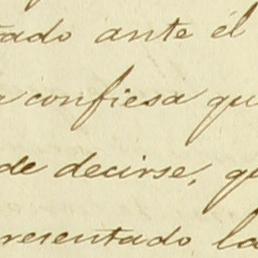 ado ante él
a confiesa qu
de decirse, q
resentado la